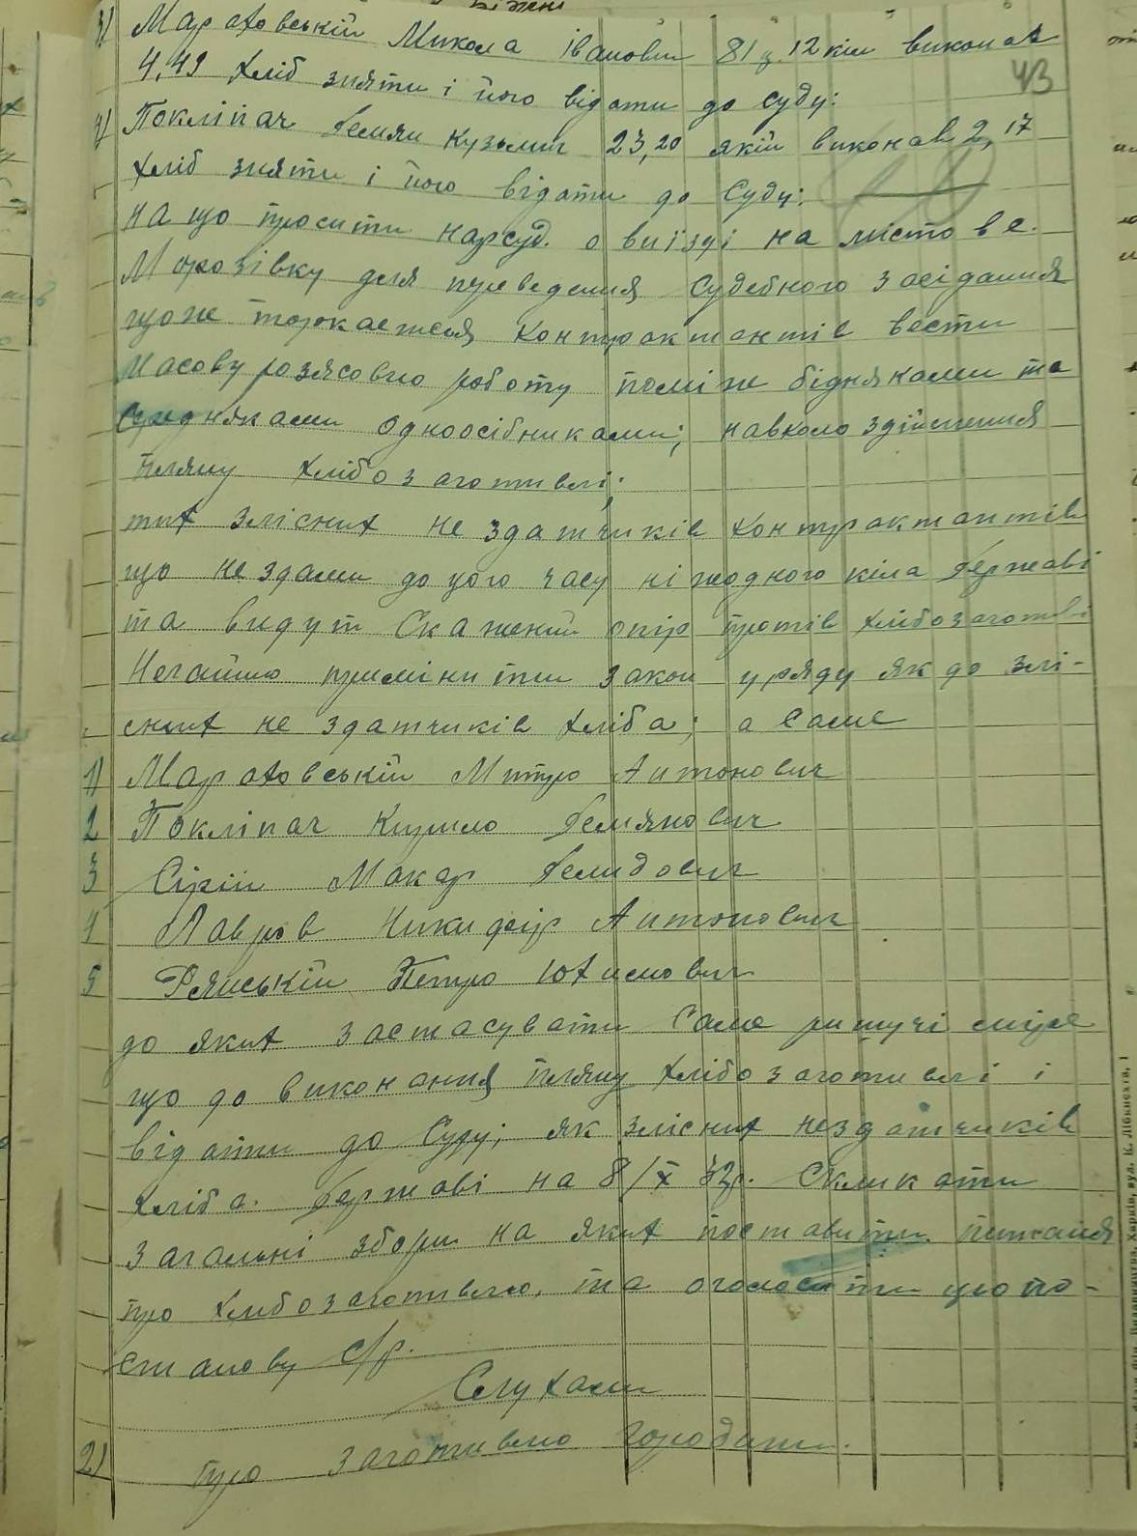 3/ Мараховській Микола Іванович 81 ц. 12 кіл виконав
43
4,49 хліб зняти і його відати до суду:
4/ Покліпач Демян Кузьмич 23,20 якій виконав 2,17
хліб зняти і його відати до Суду:
на що просити нарсуд. о виїзді на місто в с.
Морозівку для переведення Судебного засідання
що ж торкается контрактантів вести
масову розясовчо роботу поміж бідняками та
Середняками одноосібниками; навколо здійснення
пляну хлібозаготивлі;
тих злісних не здатчиків контрактантів
що не здали до цого часу ні жодного кіла Державі
та видут Скажений опір протів хлібозаготівлі
Негайно примінити закон уряду як до злі-
сних не здатчиків хліба; а саме
1/ Мараховській Митро Антонович
2 Покліпач Кирило Демянович
3 Сірій Макар Демидович
4 Лавров Никифір Антонович
5 Петро Юхимович
до яких застасувати Саме ришучі міри
що до виконання пляну хлібозаготивлі і
відати до Суду; як злісних нездатчиків
хліба. Державі на 8/X 32р. Скликати
загальні збори на яких поставити питання
про хлібозаготивлю, та оголосити цю по-
станову С/р.
Слухали
2/ про заготивлю городини.